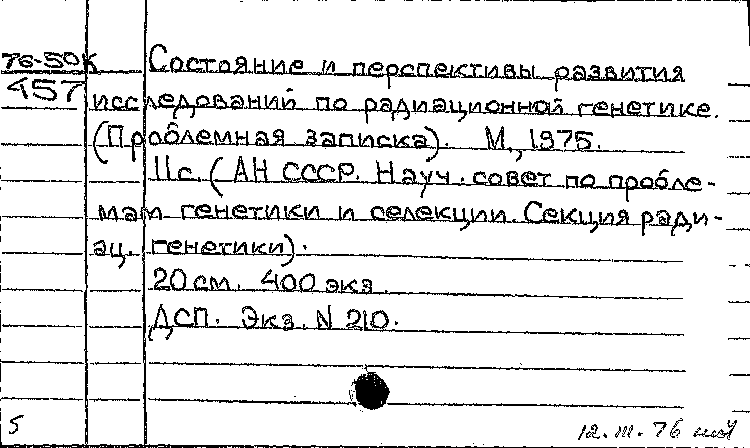 76-50к Состояние и перспективы развития
457 исследований по радиационной генетике.
(Проблемная записка). М., 1975.
11с. (АН СССР. Науч. совет по пробле-
мам генетики и селекции. Секция ради-
ац. генетики).
20 см. 400 экз.
ДСП. Экз. N 210.
5 12.III.76